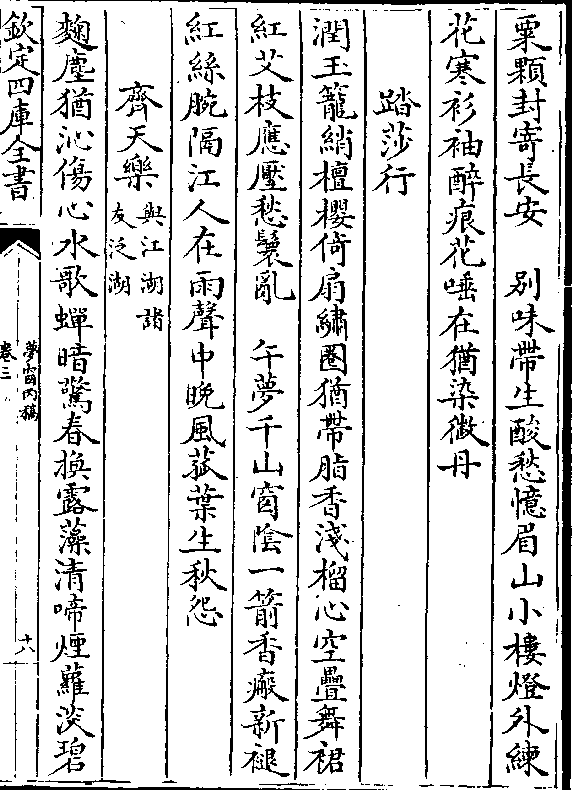 粟顆封寄長安　别味帶生酸愁憶眉山小樓燈外練
花寒衫袖醉痕花唾在猶染微丹
踏莎行
潤玉籠綃檀櫻倚扇繡圏猶帶脂香淺榴心空疊舞裙
紅艾枝應壓愁鬟亂　午夢千山窗陰一箭香瘢新褪
紅絲腕隔江人在雨聲中晚風菰葉生秋怨
齊天樂與江湖諸友泛湖
麴塵猶沁傷心水歌蟬暗驚春換露藻清啼煙蘿淡碧
欽定四庫全書
夢窗丙稿
卷三
十八